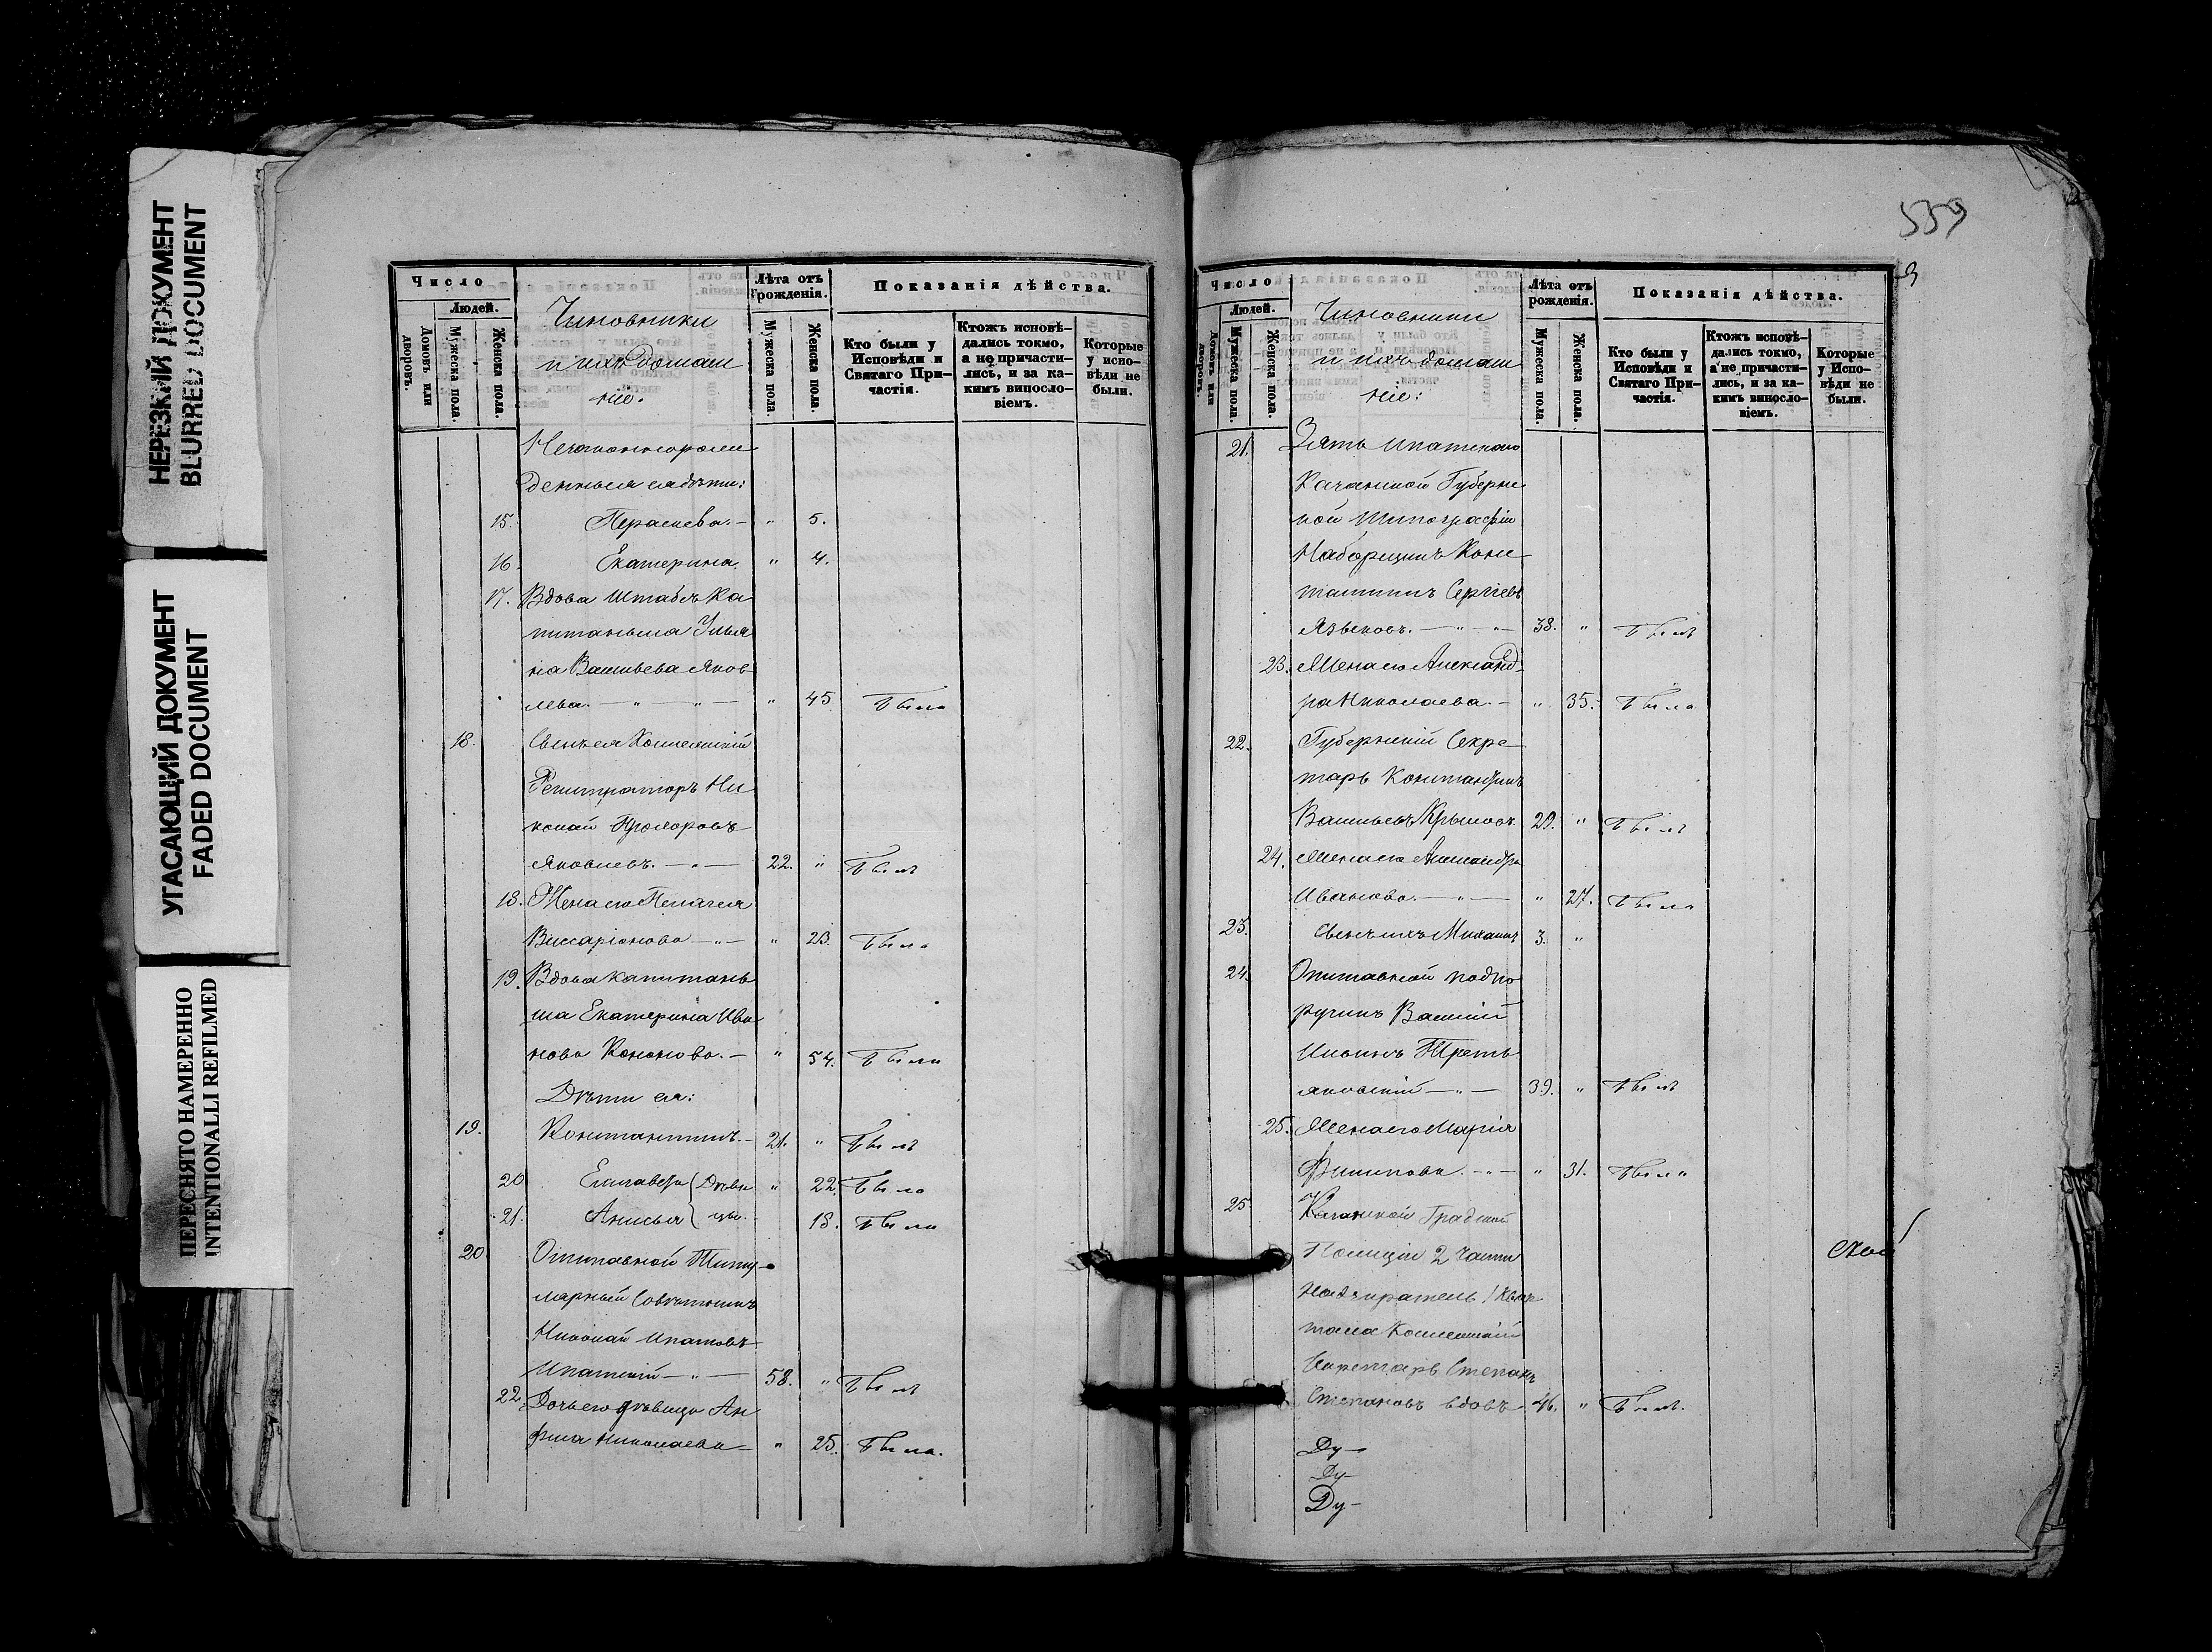 НЕРЕЗКИЙ ДОКУМЕНТ
BLURRED DOCUMENT
УГАСАЮЩИЙ ДОКУМЕНТ
FADED DOCUMENT
ПЕРЕСНЯТО НАМЕРЕННО
INTENTIONALLI REFILMED
Число
Людей.
Домовъ или дворовъ.
Мужеска пола.
Женска пола.
Чиновники
и ихъ домаш
ніе.
Лѣта отъ рожденія.
Мужеска пола.
Женска пола.
Показанія дѣйства.
Кто были у Исповѣди и Святаго Причастія.
Ктожъ исповѣдались токмо, а не причастились, и за какимъ винословіемъ.
Которые у исповѣди не были.
Незаконнорож
денныя ея дѣти:
15. Параскева. — " 5.
16. Екатерина. " 4.
17. Вдова Штабсъ Ка
питанша Улья
на Васильева Яков
лева. — " — " — " 45 Была
18. Сынъ ея Коллежскій
Регистраторъ Ни
колай Прохоровъ
Яковлевъ. — " — 22. " Былъ
18. Жена его Пелагея
Виссаріонова — " — " 23. Была
19. Вдова Капитань
ша Екатерина Ива
нова Кононова. — " 54. Была
Дѣти ея:
19. Константинъ. — 21. " Былъ
20 Елисавета Дѣви " 22. Была
21. Анисья цы. 18. Была
20 Отставной Титу
лярный Совѣтникъ
Николай Ипатовъ
Ипатскій — " — 58. " Былъ
22. Дочь его дѣвица Ан
фиса Николаева — " 25. Была.
559
Число
Людей.
Домовъ или дворовъ.
Мужеска пола.
Женска пола.
Чиновники
и ихъ домаш
ніе:
Лѣта отъ рожденія.
Мужеска пола.
Женска пола.
Показанія дѣйства.
Кто были у Исповѣди и Святаго Причастія.
Ктожъ исповѣдались токмо, а не причастились, и за какимъ винословіемъ.
Которые у Исповѣди не были.
21. Зять Ипатскаго
Казанской Губернс
кой Типографіи
Наборщикъ Конс
тантинъ Сергѣевъ
Языковъ. — " — " — 38. " Былъ
23. Жена его Александ
ра Николаева. — " 35. Была
22. Губернскій Секре
тарь Константинъ
Васильевъ 29. " Былъ
24. Жена его Александра
Иванова. — " — " 27. Была
23. Сынъ ихъ Михаилъ 3. "
24. Отставной подпо
ручикъ Василій
Ильинъ Треть
яковскій — " — 39. " Былъ
25. Жена его Марія
Филипова. — " — " 31. Была
25 Казанской Градской
Полиціи 2 части
Надзиратель 1 квар
тала Коллежскій
Секретарь Степанъ
Степановъ вдовъ 46. " Былъ.
Ду—
Ду—
Ду—